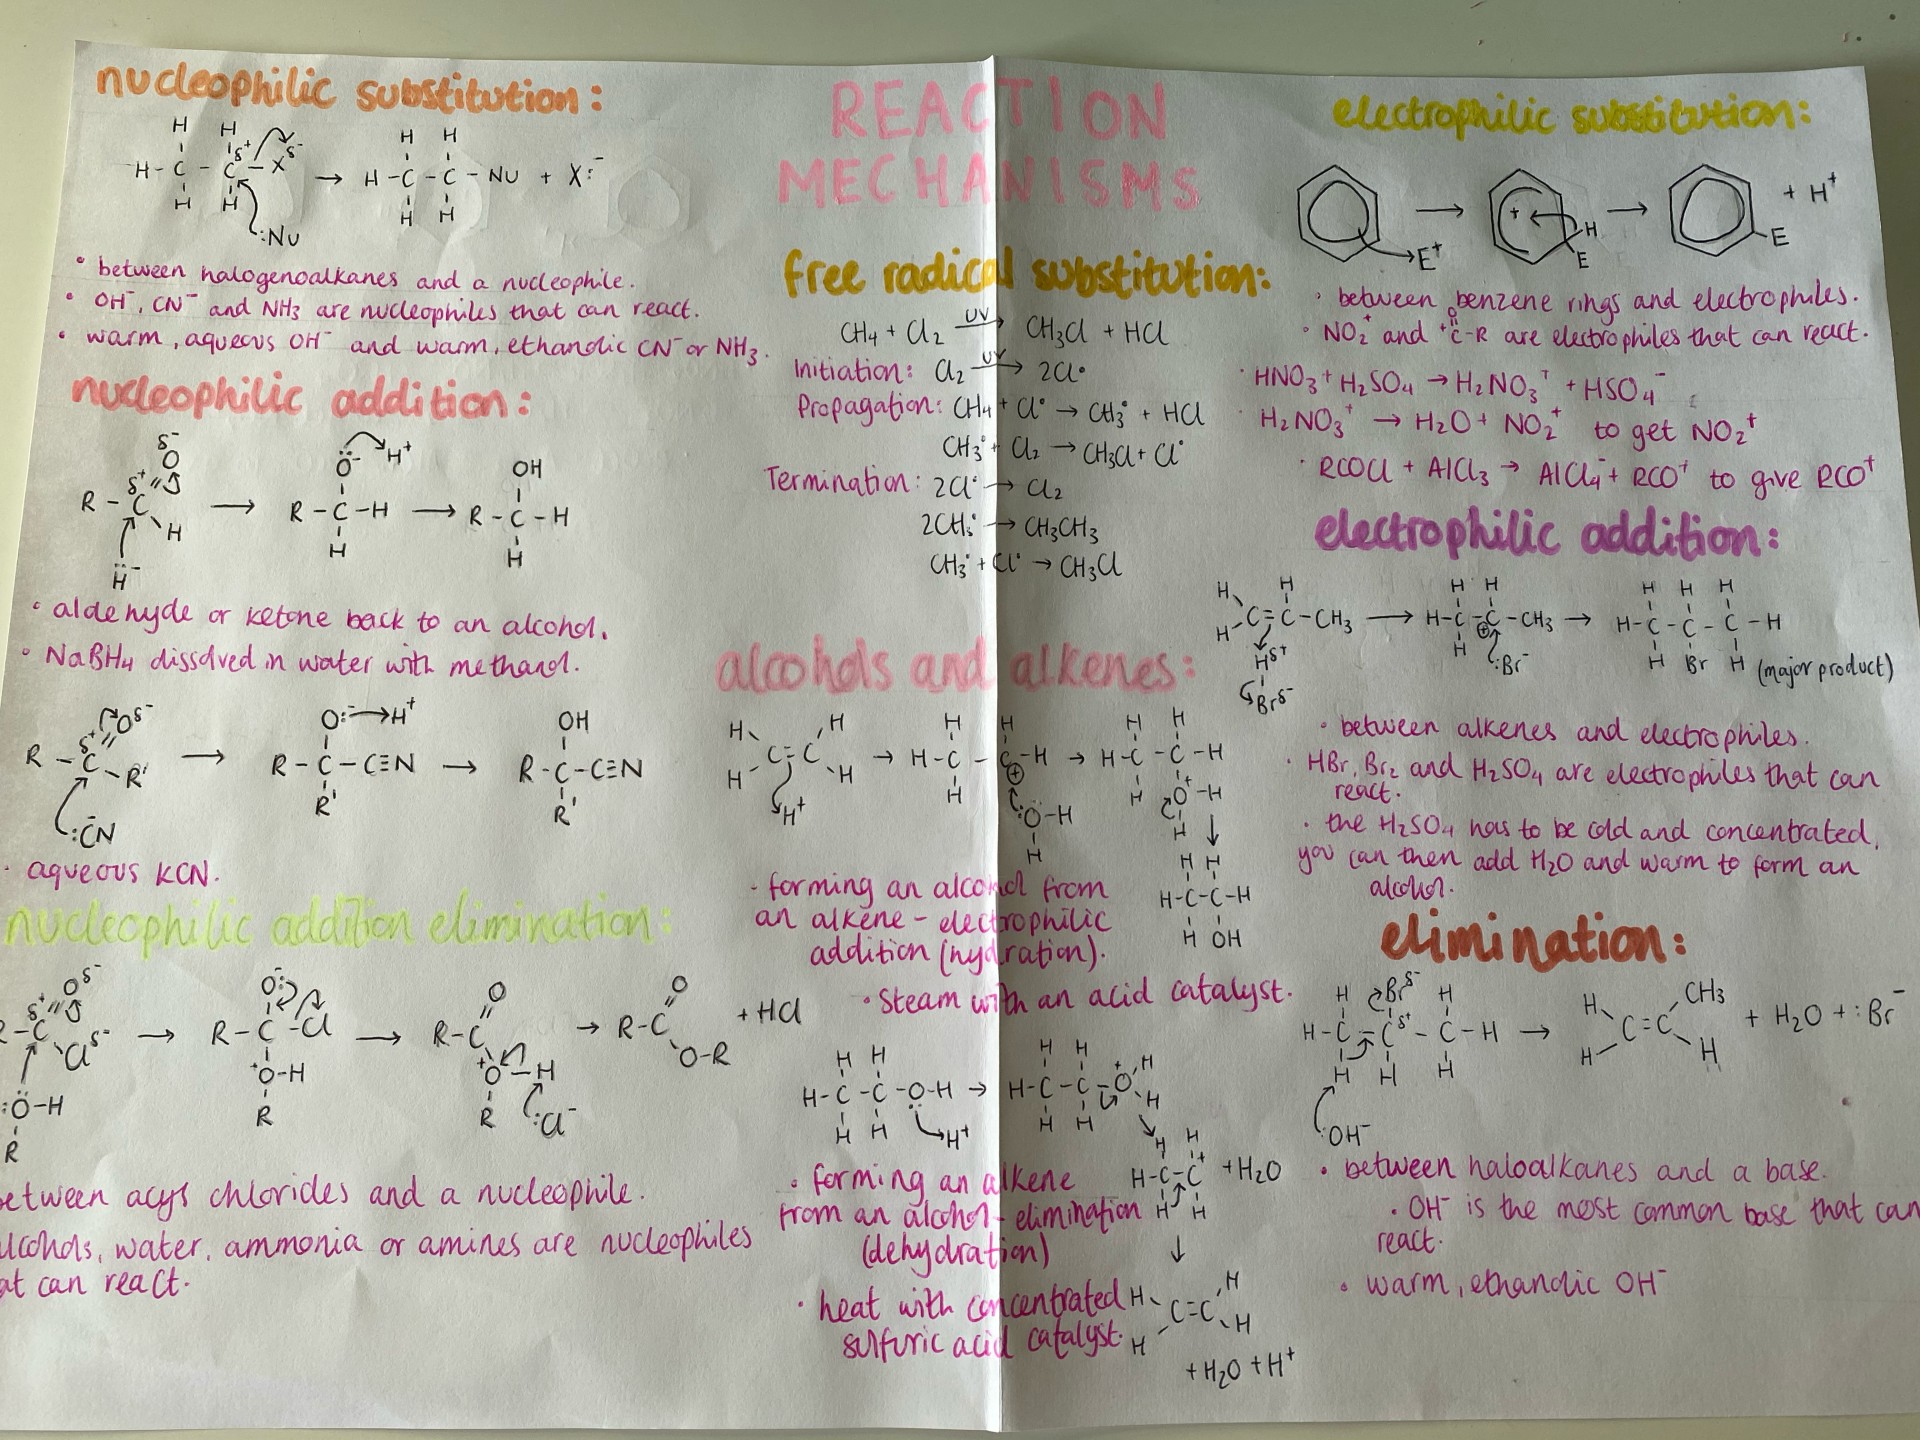 REACTION
MECHANISMS
nucleophilic substitution:
H H
H - C - C δ+ - X δ- → H - C - C - NU + X:⁻
H H
:NU
• between halogenoalkanes and a nucleophile.
• OH⁻, CN⁻ and NH3 are nucleophiles that can react.
• warm, aqueous OH⁻ and warm, ethanolic CN⁻ or NH3.
nucleophilic addition:
δ- O O⁻ H⁺ OH
R - C δ+ → R - C - H → R - C - H
H H H
H⁻
• aldehyde or ketone back to an alcohol.
• NaBH4 dissolved in water with methanol.
Oδ- O:⁻ → H⁺ OH
R - C δ+ - R' → R - C - C≡N → R - C - C≡N
R' R'
:C⁻N
• aqueous KCN.
nucleophilic addition elimination:
Oδ- O:⁻ O O
C δ+ Cl δ- → R - C - Cl → R - C → R - C + HCl
⁺O - H ⁺O - H O - R
:O - H R R :Cl⁻
R
between acyl chlorides and a nucleophile.
alcohols, water, ammonia or amines are nucleophiles
at can react.
free radical substitution:
CH4 + Cl2 UV→ CH3Cl + HCl
Initiation: Cl2 UV→ 2Cl•
Propagation: CH4 + Cl• → CH3• + HCl
CH3• + Cl2 → CH3Cl + Cl•
Termination: 2Cl• → Cl2
2CH3• → CH3CH3
CH3• + Cl• → CH3Cl
alcohols and alkenes:
H H H H H H
C = C → H - C - C - H → H - C - C - H
H H H ⊕ H ⁺O - H
H⁺ :O - H H
H ↓
H H
H - C - C - H
H OH
- forming an alcohol from
an alkene - electrophilic
addition (hydration).
• Steam with an acid catalyst.
H H H H H
H - C - C - O - H → H - C - C - O⁺
H H H⁺ H H H
H H
H - C - C⁺ + H2O
H H
↓
• forming an alkene
from an alcohol - elimination
(dehydration)
• heat with concentrated
sulfuric acid catalyst.
H H
C = C
H H
+ H2O + H⁺
electrophilic substitution:
→ + → + H⁺
E⁺ H E E
• between benzene rings and electrophiles.
O
• NO2⁺ and ⁺C - R are electrophiles that can react.
• HNO3 + H2SO4 → H2NO3⁺ + HSO4⁻
• H2NO3⁺ → H2O + NO2⁺ to get NO2⁺
• RCOCl + AlCl3 → AlCl4⁻ + RCO⁺ to give RCO⁺
electrophilic addition:
H H H H H H H
C = C - CH3 → H - C - C - CH3 → H - C - C - C - H
H H ⊕ H Br H (major product)
Hδ+ :Br⁻
Brδ-
• between alkenes and electrophiles.
• HBr, Br2 and H2SO4 are electrophiles that can
react.
• the H2SO4 has to be cold and concentrated,
you can then add H2O and warm to form an
alcohol.
elimination:
H Brδ- H H CH3
H - C - C δ+ - C - H → C = C + H2O + :Br⁻
H H H H H
:OH⁻
• between haloalkanes and a base.
• OH⁻ is the most common base that can
react.
• warm, ethanolic OH⁻